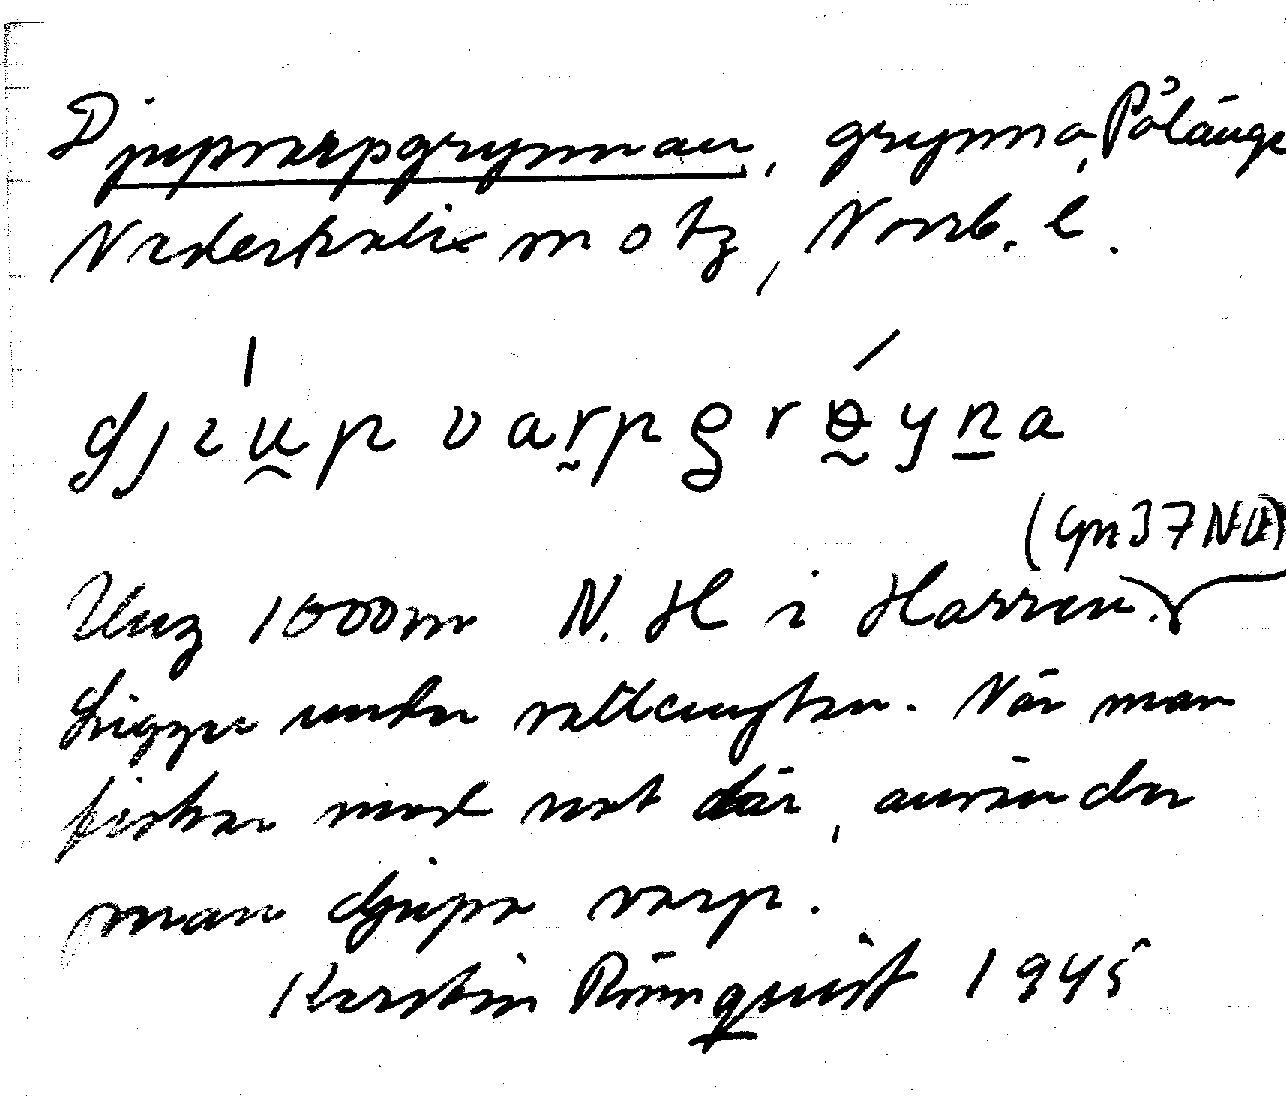 Djupvarpgrynnan, grynna, Pålänge
Nederkalix sn o tg, Norrb. l.
djɩu̯p varpgrɵynа
(Gpn 37 NO)
Ung 1000 m N. H i Harren.
Ligger under vattenytan. När man
fiskar med not där, använder
man djupa varp.
Kerstin Rönnquist 1945